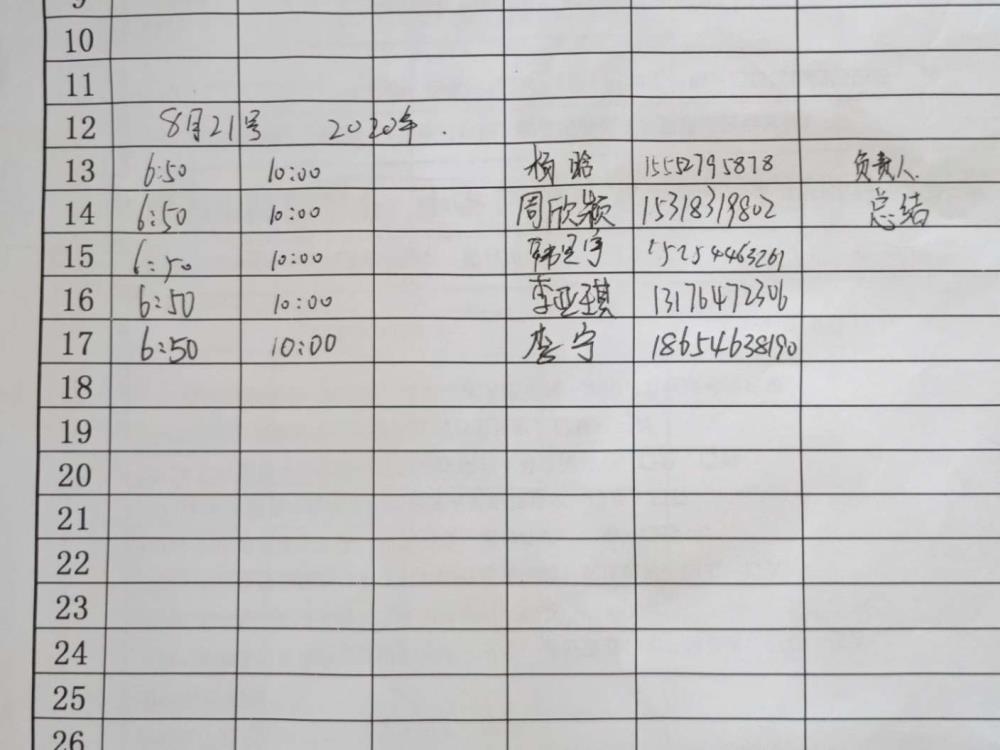 9
10
11
12 8月21号 2020年.
13 6:50 10:00 杨晗 15552795878 负责人.
14 6:50 10:00 周欣颖 15318319802 总结
15 6:50 10:00 15254463261
16 6:50 10:00 李亚琪 13176472306
17 6:50 10:00 李宁 18654638190
18
19
20
21
22
23
24
25
26